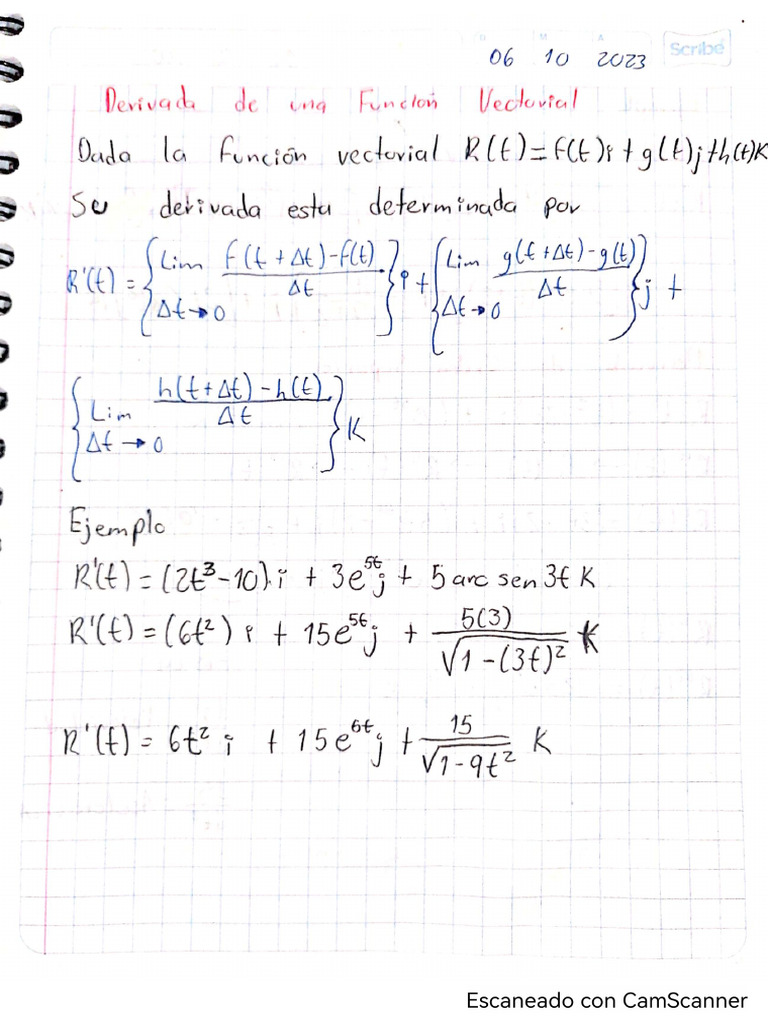 D M A
06 10 2023 Scribe
Derivada de una Función Vectorial
Dada la función vectorial R(t)=f(t)i+g(t)j+h(t)K
Su derivada esta determinada por
R'(t) = {Lim Δt→0 f(t+Δt)-f(t)/Δt}i + {Lim Δt→0 g(t+Δt)-g(t)/Δt}j +
{Lim Δt→0 h(t+Δt)-h(t)/Δt}K
Ejemplo
R'(t) = (2t³-10)i + 3e^5t j + 5 arc sen 3t K
R'(t) = (6t²) i + 15e^5t j + 5(3)/√1-(3t)² K
R'(t) = 6t² i + 15e^6t j + 15/√1-9t² K
Escaneado con CamScanner